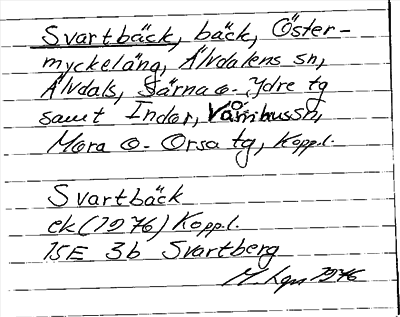 Svartbäck, bäck, Öster-
myckeläng, Älvdalens sn,
Älvdals, Särna o. Idre tg
samt Indor, Våmhus sn,
Mora o. Orsa tg, Kopp.l.
Svartbäck
ek (1976) Kopp.l.
15E 3b Svartberg
M. Lgn 1976